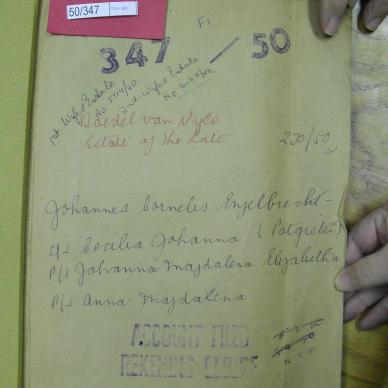 50/347
F1
347/50
1st Wifes Estate
No 3714/50.
2nd Wifes Estate
No 6162/50.
Boedel van Wyle
Estate of the Late
230/50
Johannes Cornelis Engelbrecht-
q/s Cecilia Johanna (Potgieter)
p/s Johanna Magdalena Elizabetha
p/s Anna Magdalena
ACCOUNT FILED
REKENING GELIPF